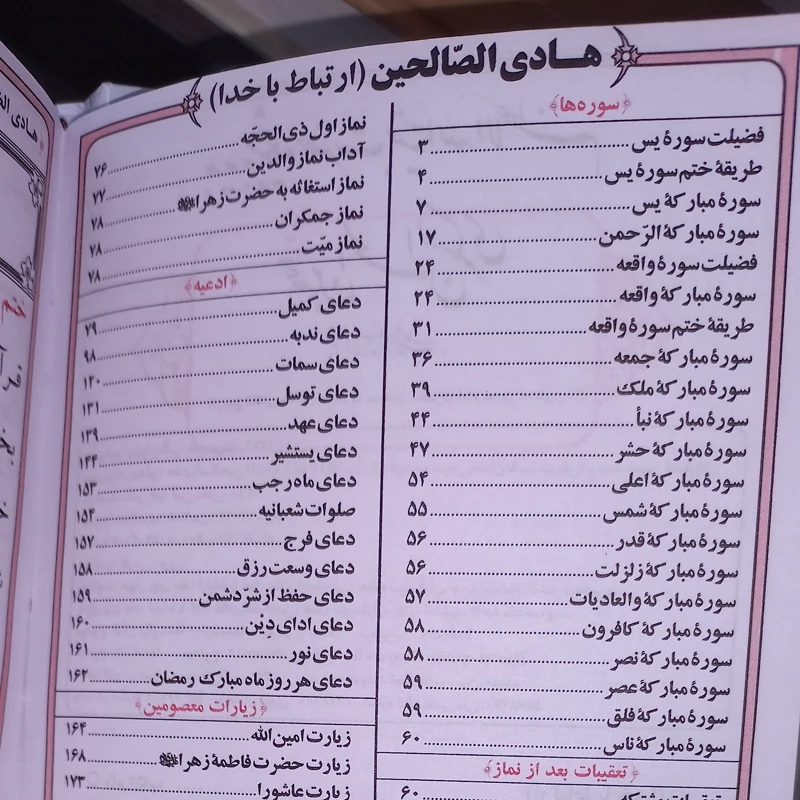 هادی الصّالحین (ارتباط با خدا)
﴿سوره‌ها﴾
فضیلت سورهٔ یس ۳
طریقهٔ ختم سورهٔ یس ۴
سورهٔ مبارکهٔ یس ۷
سورهٔ مبارکهٔ الرّحمن ۱۷
فضیلت سورهٔ واقعه ۲۴
سورهٔ مبارکهٔ واقعه ۲۴
طریقهٔ ختم سورهٔ واقعه ۳۱
سورهٔ مبارکهٔ جمعه ۳۶
سورهٔ مبارکهٔ ملک ۳۹
سورهٔ مبارکهٔ نبأ ۴۴
سورهٔ مبارکهٔ حشر ۴۷
سورهٔ مبارکهٔ اعلی ۵۴
سورهٔ مبارکهٔ شمس ۵۵
سورهٔ مبارکهٔ قدر ۵۶
سورهٔ مبارکهٔ زلزلت ۵۶
سورهٔ مبارکهٔ والعادیات ۵۷
سورهٔ مبارکهٔ کافرون ۵۸
سورهٔ مبارکهٔ نصر ۵۸
سورهٔ مبارکهٔ عصر ۵۹
سورهٔ مبارکهٔ فلق ۵۹
سورهٔ مبارکهٔ ناس ۶۰
﴿تعقیبات بعد از نماز﴾
تعقیبات مشترکه ۶۰
نماز اول ذی الحجّه ۷۶
آداب نماز والدین ۷۷
نماز استغاثه به حضرت زهرا ۷۸
نماز جمکران ۷۸
نماز میّت ۷۸
﴿ادعیه﴾
دعای کمیل ۷۹
دعای ندبه ۹۸
دعای سمات ۱۲۰
دعای توسل ۱۳۱
دعای عهد ۱۳۹
دعای یستشیر ۱۴۴
دعای ماه رجب ۱۵۳
صلوات شعبانیه ۱۵۴
دعای فرج ۱۵۷
دعای وسعت رزق ۱۵۸
دعای حفظ از شرّ دشمن ۱۵۹
دعای ادای دِیْن ۱۶۰
دعای نور ۱۶۱
دعای هر روز ماه مبارک رمضان ۱۶۲
﴿زیارات معصومین﴾
زیارت امین الله ۱۶۴
زیارت حضرت فاطمهٔ زهرا ۱۶۸
زیارت عاشورا ۱۷۳